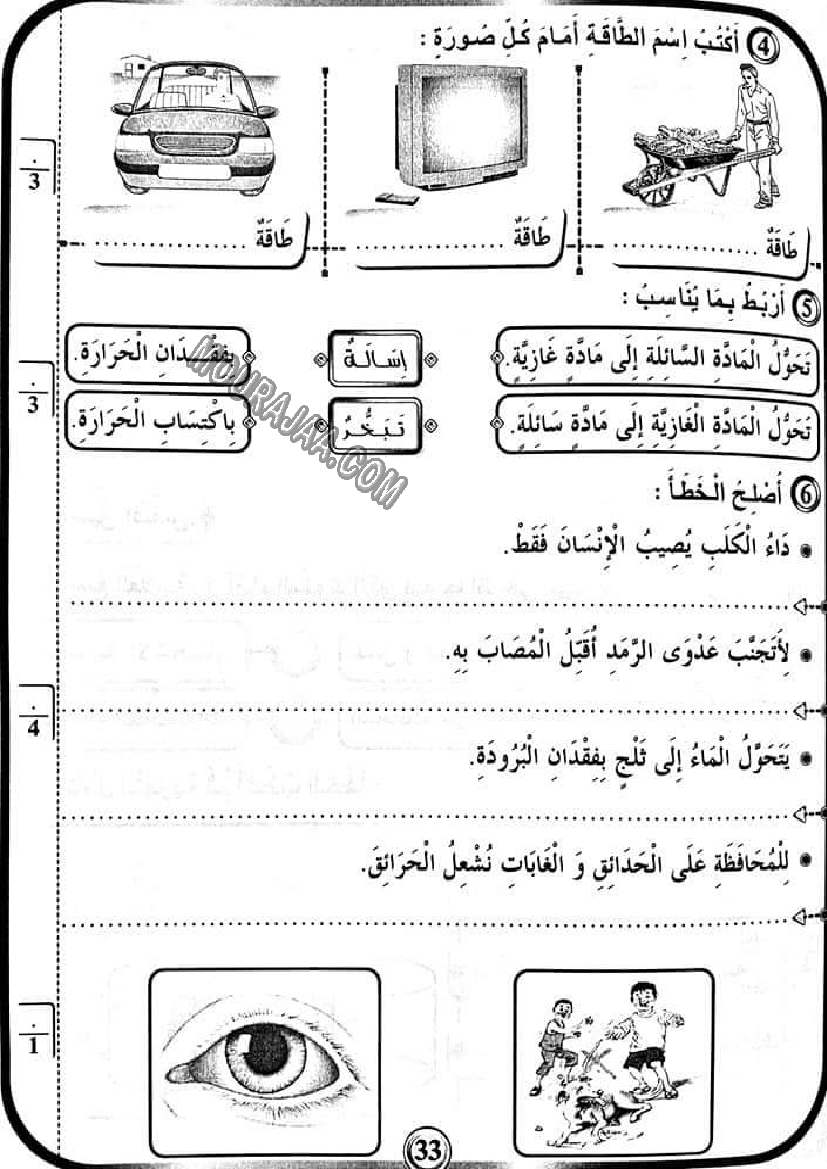 4 أَكْتُبُ اِسْمَ الطَّاقَةِ أَمَامَ كُلِّ صُورَةٍ :
طَاقَةٌ .............. طَاقَةٌ .............. طَاقَةٌ ..............
3
5 أَرْبُطُ بِمَا يُنَاسِبُ :
تَحَوُّلُ الْمَادَّةِ السَّائِلَةِ إِلَى مَادَّةٍ غَازِيَّةٍ. إِسَالَةٌ بِفِقْدَانِ الْحَرَارَةِ.
تَحَوُّلُ الْمَادَّةِ الْغَازِيَّةِ إِلَى مَادَّةٍ سَائِلَةٍ. تَبَخُّرُ بِاكْتِسَابِ الْحَرَارَةِ.
3
MOURAJAA.COM
6 أُصْلِحُ الْخَطَأَ :
• دَاءُ الْكَلَبِ يُصِيبُ الْإِنْسَانَ فَقَطْ.
• لِأَتَجَنَّبَ عَدْوَى الرَّمَدِ أُقَبِّلُ الْمُصَابَ بِهِ.
4
• يَتَحَوَّلُ الْمَاءُ إِلَى ثَلْجٍ بِفِقْدَانِ الْبُرُودَةِ.
• لِلْمُحَافَظَةِ عَلَى الْحَدَائِقِ وَ الْغَابَاتِ نُشْعِلُ الْحَرَائِقَ.
1
33